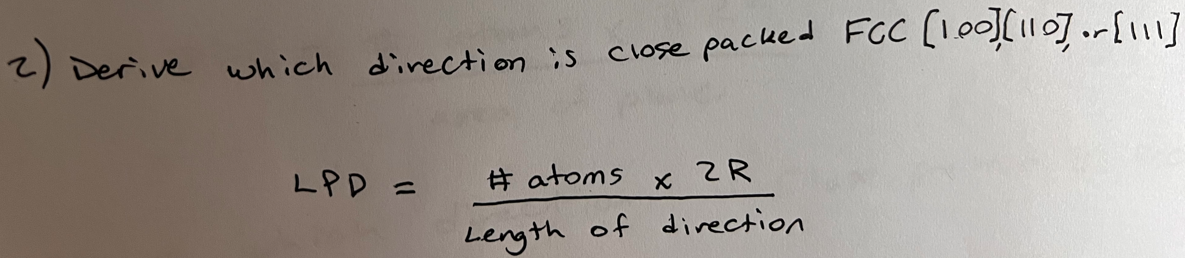 2) Derive which direction is close packed FCC [100],[110], or [111]
LPD = # atoms x 2R / Length of direction